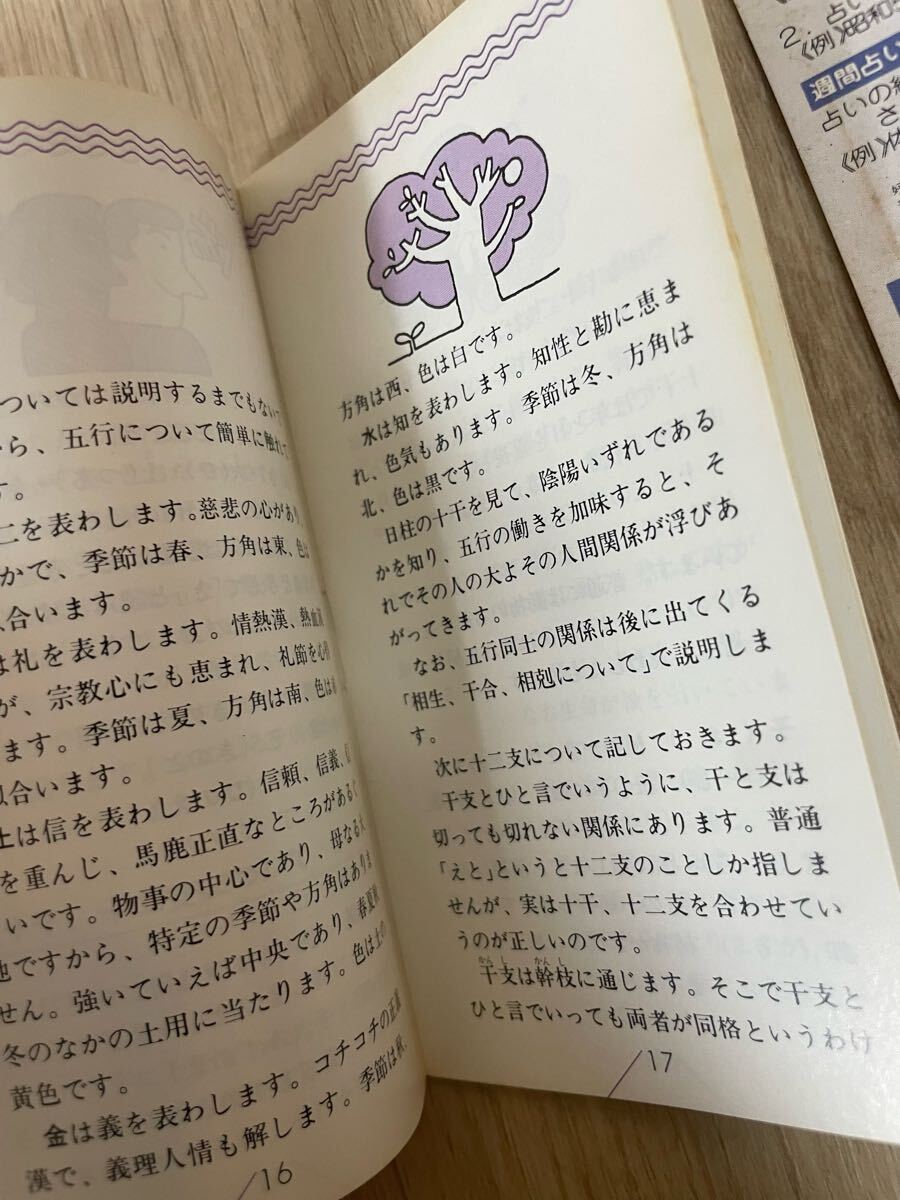 ついては説明するまでもない
ら、五行について簡単に触れて
す。
を表わします。慈悲の心があり、
かで、季節は春、方角は東、色は
合います。
は礼を表わします。情熱漢、熱血漢
が、宗教心にも恵まれ、礼節を心
ます。季節は夏、方角は南、色は
似合います。
土は信を表わします。信頼、信義、
を重んじ、馬鹿正直なところがある
いです。物事の中心であり、母なる大
地ですから、特定の季節や方角はありま
せん。強いていえば中央であり、春夏秋
冬のなかの土用に当たります。色は土の
黄色です。
金は義を表わします。コチコチの正義
漢で、義理人情も解します。季節は秋、
16
方角は西、色は白です。
水は知を表わします。知性と勘に恵ま
れ、色気もあります。季節は冬、方角は
北、色は黒です。
日柱の十干を見て、陰陽いずれである
かを知り、五行の働きを加味すると、そ
れでその人の大よその人間関係が浮びあ
がってきます。
なお、五行同士の関係は後に出てくる
「相生、干合、相剋について」で説明しま
す。
次に十二支について記しておきます。
干支とひと言でいうように、干と支は
切っても切れない関係にあります。普通
「えと」というと十二支のことしか指しま
せんが、実は十干、十二支を合わせてい
うのが正しいのです。
かんし かんし
干支は幹枝に通じます。そこで干支と
ひと言でいっても両者が同格というわけ
17
2.占い
《例》昭和
週間占い
占いの
さ
《例》